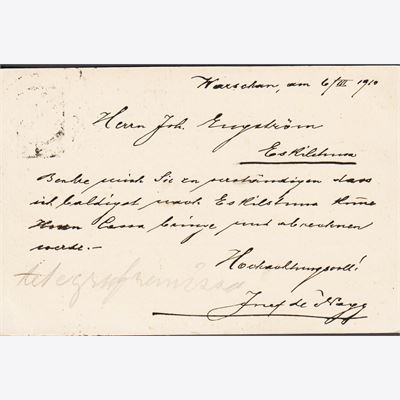 Warschau, am 6/III 1910
Herrn Joh. Engström
Eskilstuna
Beehre mich Sie zu verständigen dass
ich baldigst nach Eskilstuna komme
Ihnen Cassa bringe und abrechnen
werde.-
Hochachtungsvoll!
Josef de Nagy